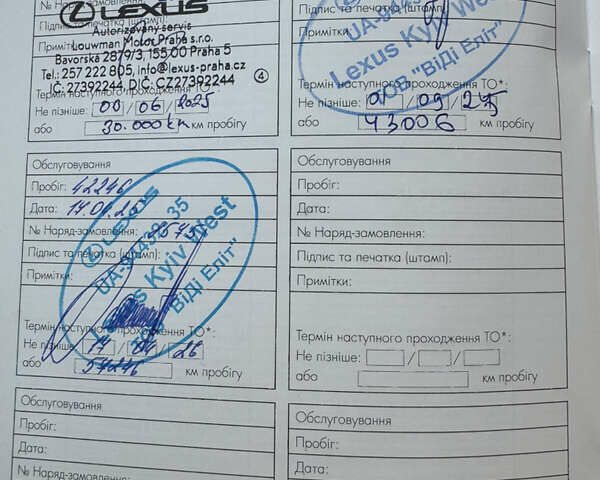 № На
LEXUS
Підпис
Autorizovaný servis
Примітки
Louwman Motor Praha s.r.o.
Bavorská 2879/3, 155 00 Praha 5
Tel.: 257 222 805, info@lexus-praha.cz
IČ: 27392244, DIČ: CZ27392244
4
Термін наступного проходження ТО*:
Не пізніше: 00 / 06 / 2025
або 30.000 км км пробігу
Підпис та печатка (штамп):
Примітки:
Lexus Kyiv West
ТОВ "ВіДі Еліт"
Термін наступного проходження ТО*:
Не пізніше: / 09 / 25
або 43006 км пробігу
Обслуговування
Пробіг: 42246
Дата:
№ Наряд-замовлення:
Підпис та печатка (штамп):
Примітки:
LEXUS
Lexus Kyiv West
"ВіДі Еліт"
Термін наступного проходження ТО*:
Не пізніше: 17 / 04 / 26
або 57246 км пробігу
Обслуговування
Пробіг:
Дата:
№ Наряд-замовлення:
Підпис та печатка (штамп):
Примітки:
Термін наступного проходження ТО*:
Не пізніше: / /
або км пробігу
Обслуговування
Пробіг:
Дата:
№ Наряд-замовлення:
Обслуговування
Пробіг:
Дата:
№ Наряд-замовлення: